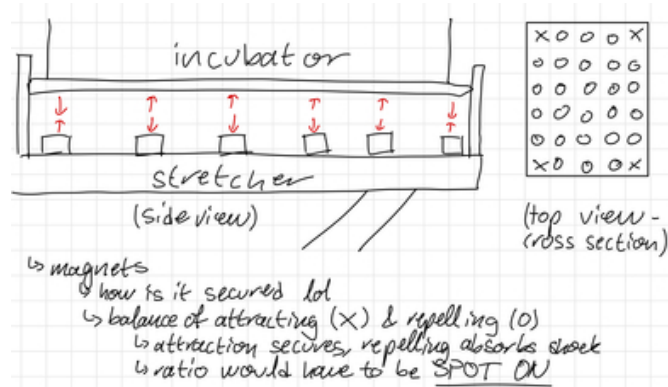 incubator
stretcher
(side view)
X O O O X
O O O O O
O O O O O
O O O O O
O O O O O
X O O O X
(top view -
cross section)
↳ magnets
↳ how is it secured lol
↳ balance of attracting (X) & repelling (O)
↳ attraction secures, repelling absorbs shock
↳ ratio would have to be SPOT ON